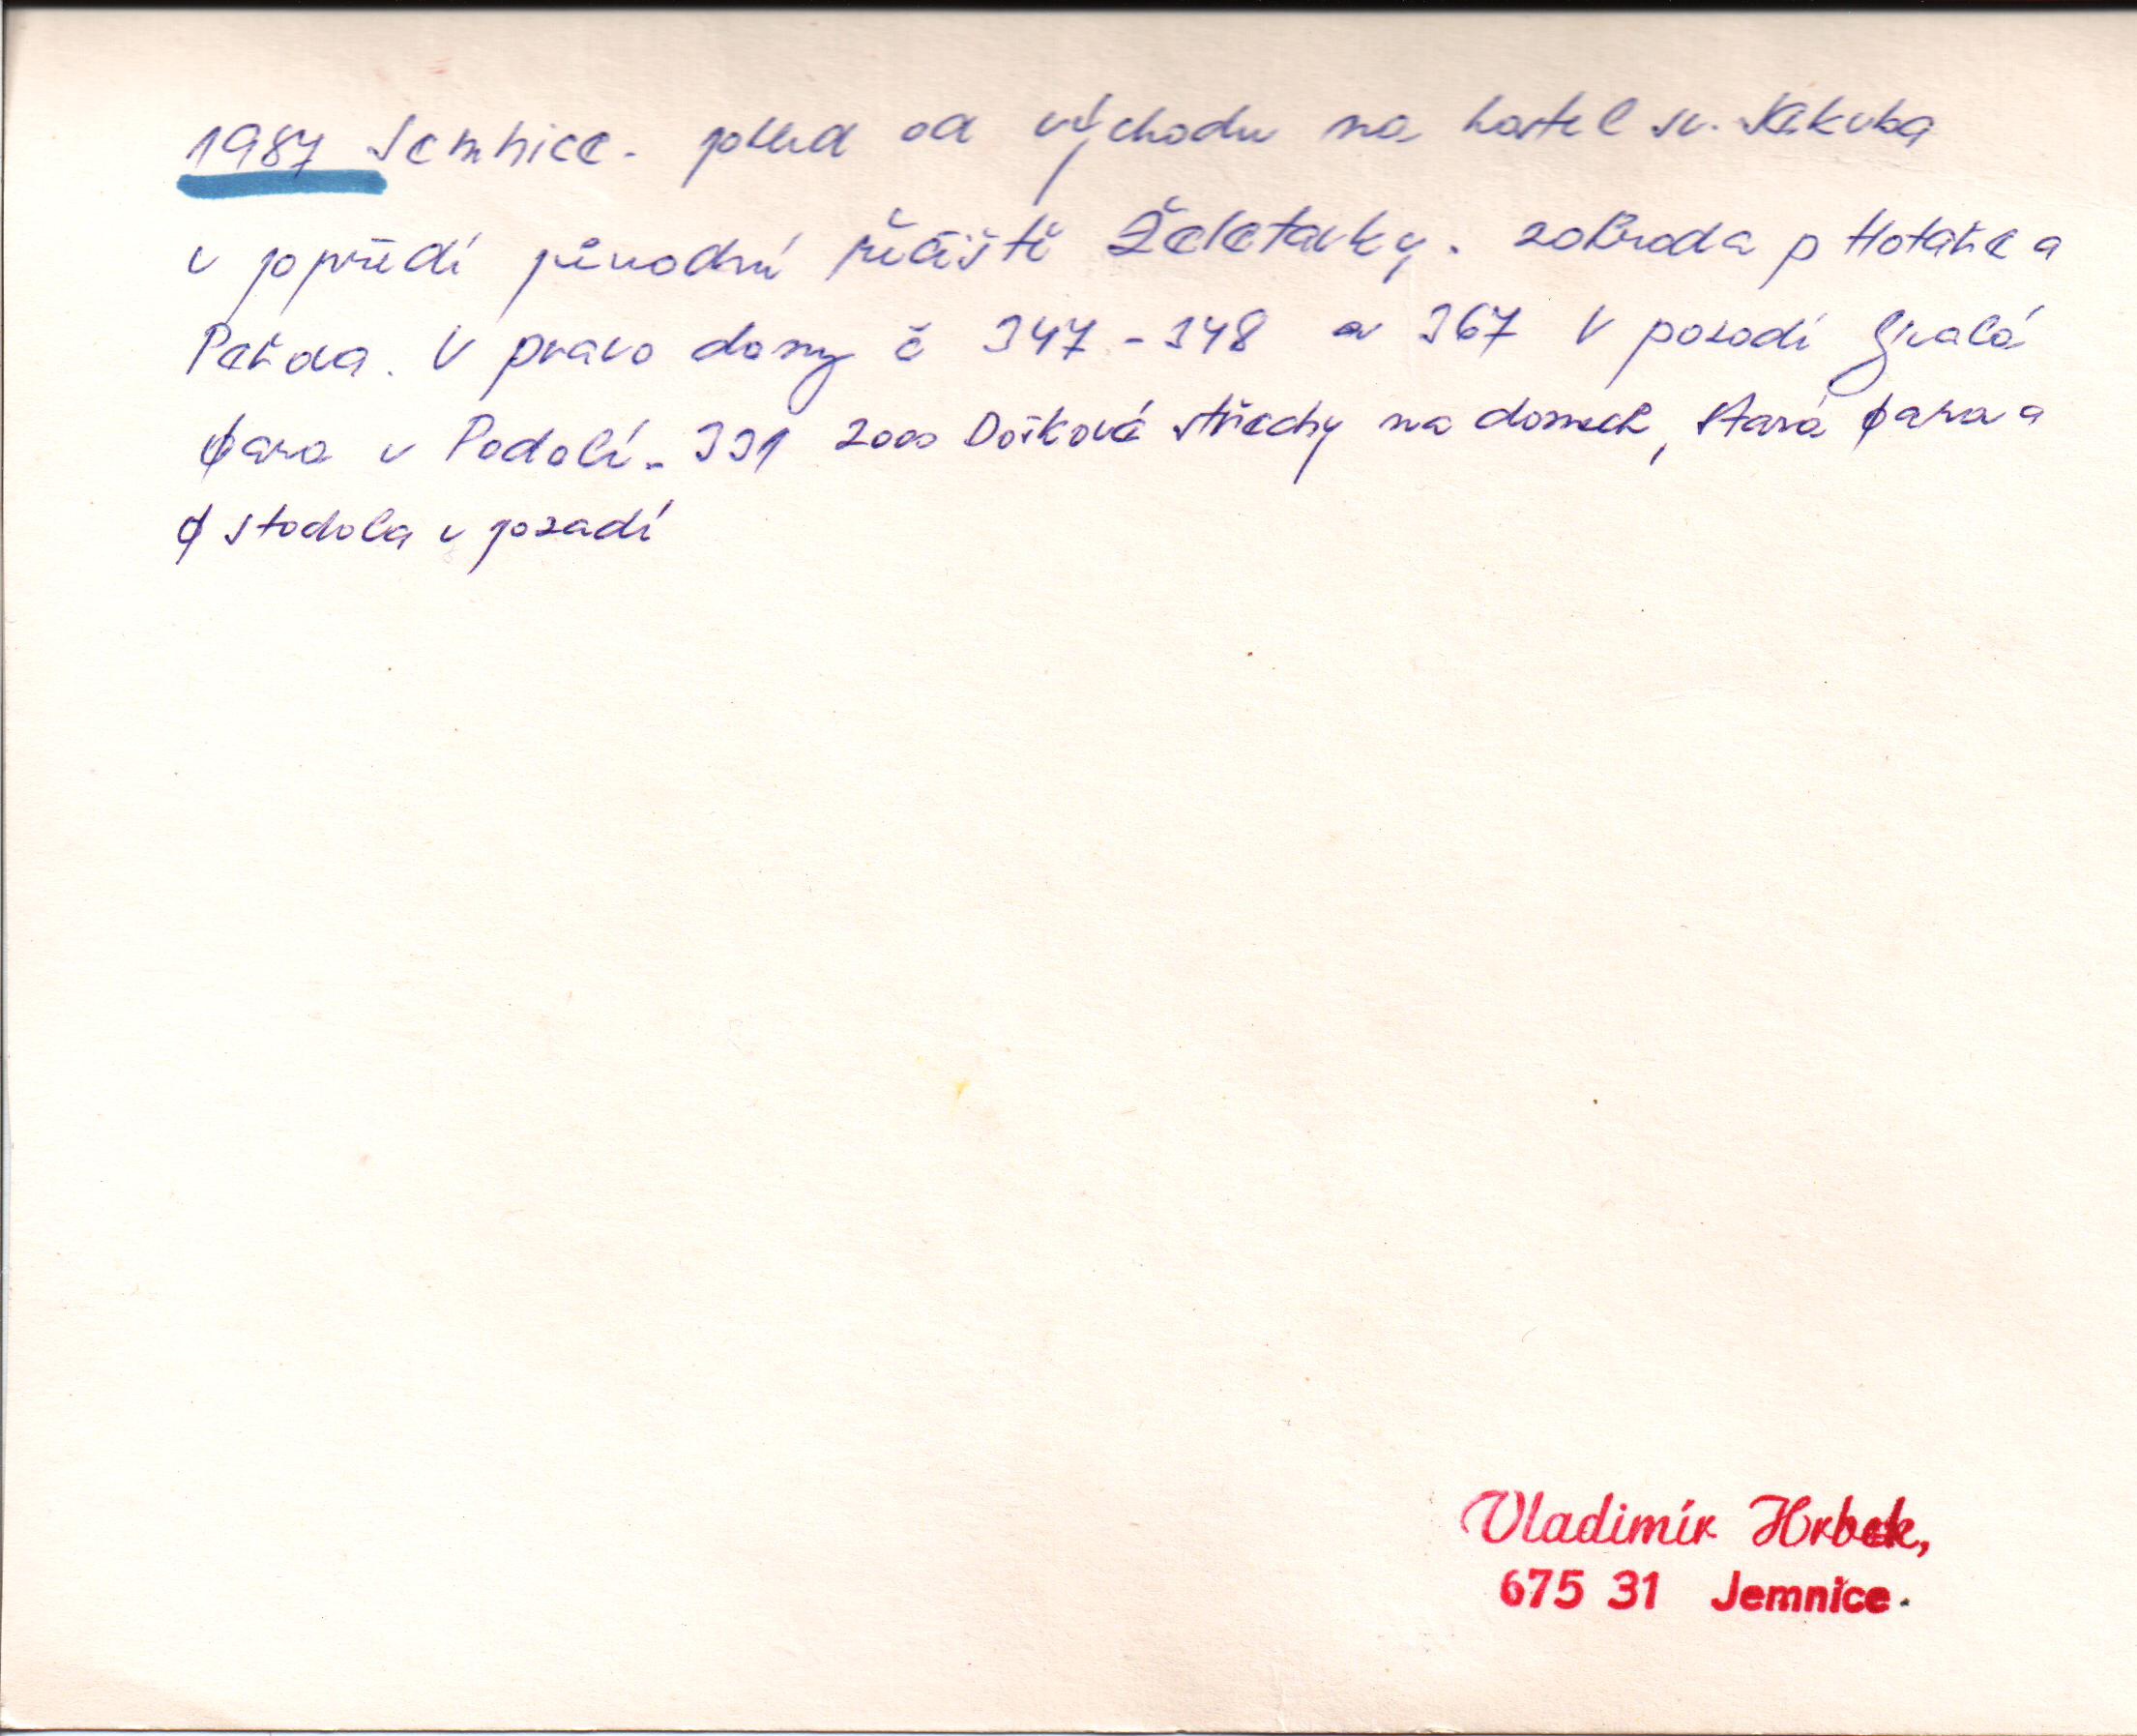 1987 Jemnice. pohled od východu na kostel sv. Jakuba
v popředí původní řečiště Želetavky. zahrada p Hotaře a
Peňva. V pravo domy č 347 - 348 a 367 V pozadí
fara v Podolí - 331 Došková střechy na domech, stará fara a
stodola v pozadí
Vladimír Hrbek,
675 31 Jemnice.